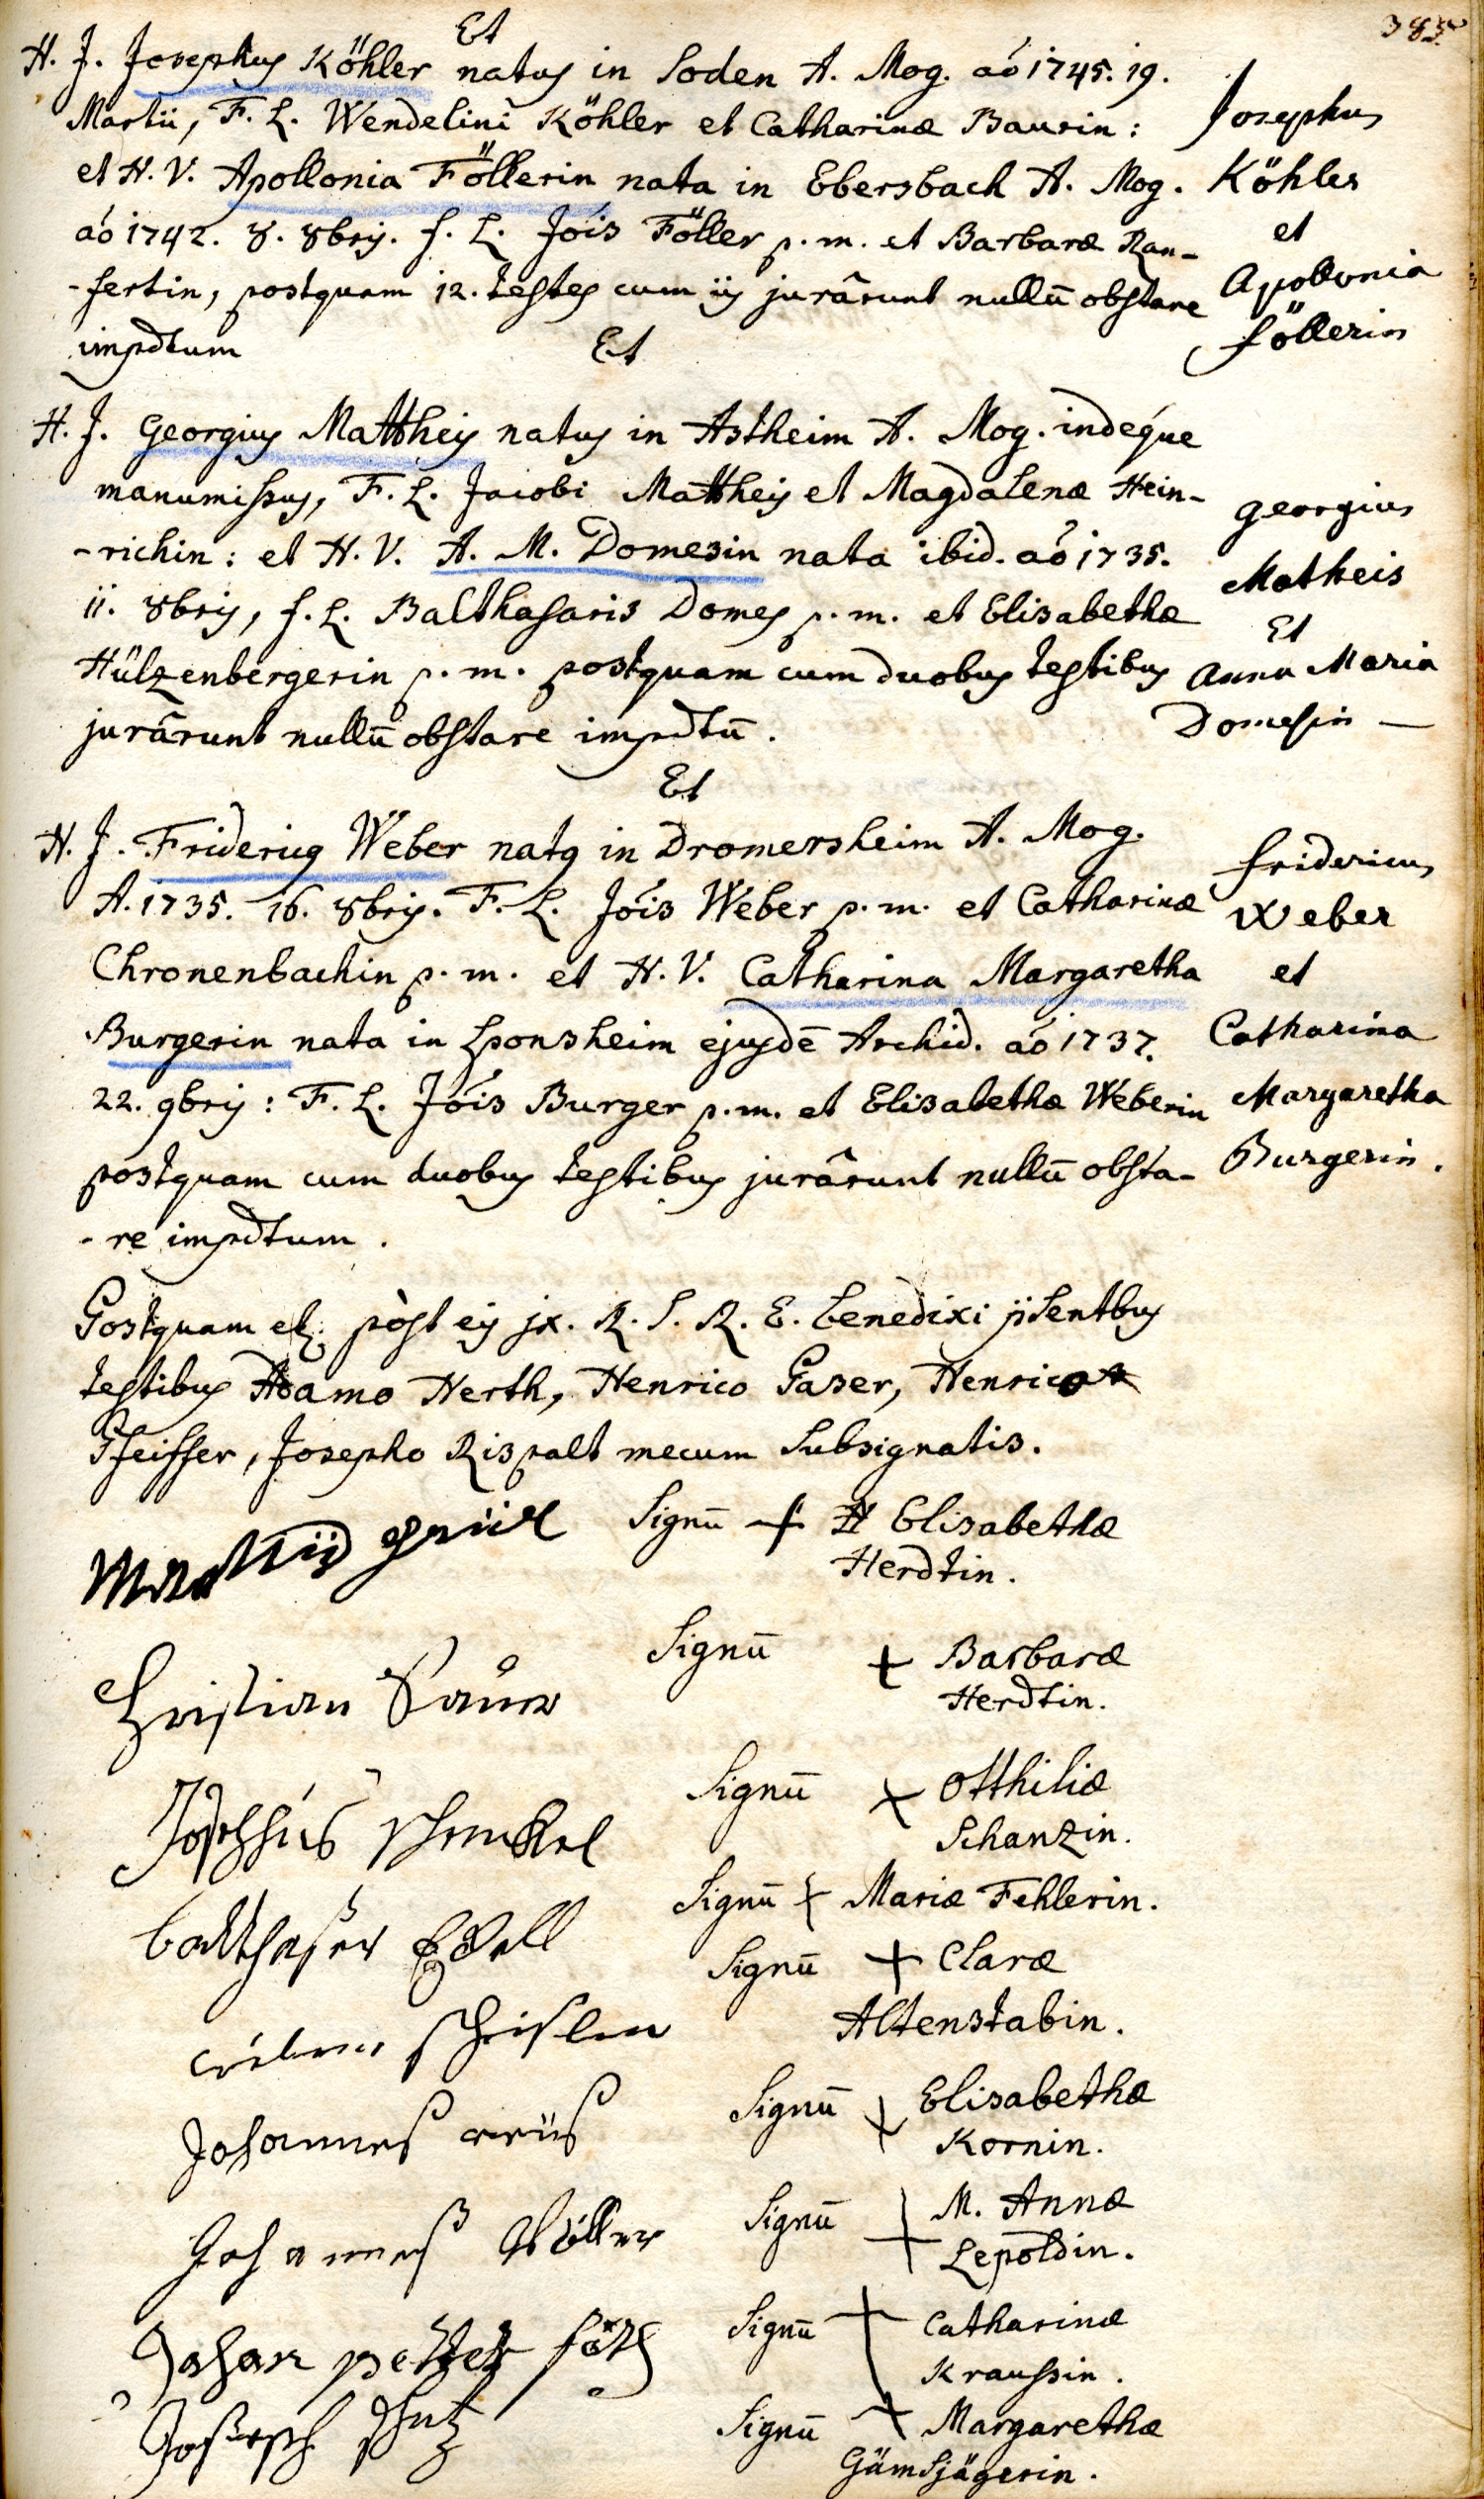 385
Et
H. J. Josephus Köhler natus in Soden A. Mog. aó 1745. 19.
Martii, F. L. Wendelini Köhler et Catharinæ Baurin:
et H. V. Apollonia Föllerin nata in Ebersbach A. Mog.
aó 1742. 8. 8bris. f. L. Jóis Föller p. m. et Barbaræ Ran-
-fertin, postquam 12. testes cum iis jurârunt nullū obstare
impdtum
Josephus
Köhler
et
Apollonia
föllerin
Et
H. J. Georgius Mattheis natus in Astheim A. Mog. indéque
manumissus, F. L. Jacobi Mattheis et Magdalenæ Hein-
-richin: et H. V. A. M. Domesin nata ibid. aó 1735.
11. 8bris, f. L. Balthasaris Domes p. m. et Elisabethæ
Hülzenbergerin p. m. postquam cum duobus testibus
jurârunt nullū obstare impdtū.
georgius
Matheis
Et
Anna Maria
Domesin —
Et
H. J. Fridericus Weber natus in Dromersheim A. Mog.
A. 1735. 16. 8bris. F. L. Jóis Weber p. m. et Catharinæ
Chronenbachin p. m. et H. V. Catharina Margaretha
Burgerin nata in Sponsheim ejusdē Archid. aó 1737.
22. 9bris: F. L. Jóis Burger p. m. et Elisabethæ Weberin
postquam cum duobus testibus jurârunt nullū obsta-
-re impdtum.
fridericus
Weber
et
Catharina
Margaretha
Burgerin.
Postquam et pòst eis jx. R. S. R. E. benedixi
testibus Adamo Herth, Henrico Paser, Henrico
Pfeiffer, Josepho Rispalt mecum subsignatis.
Signū + Elisabethæ
Herdtin.
Christian Saur
Signū + Barbaræ
Herdtin.
Josephus schenckel
Signū + Otthiliæ
Schanzin.
Signū + Mariæ Fehlerin.
balthaser
Signū + Claræ
Altenstabin.
Johannes
Signū + Elisabethæ
Kornin.
Johannes
Signū + M. Annæ
Lepoldin.
Johan petter
Signū + Catharinæ
Kraussin.
Joseph
Signū + Margarethæ
Gämsjägerin.